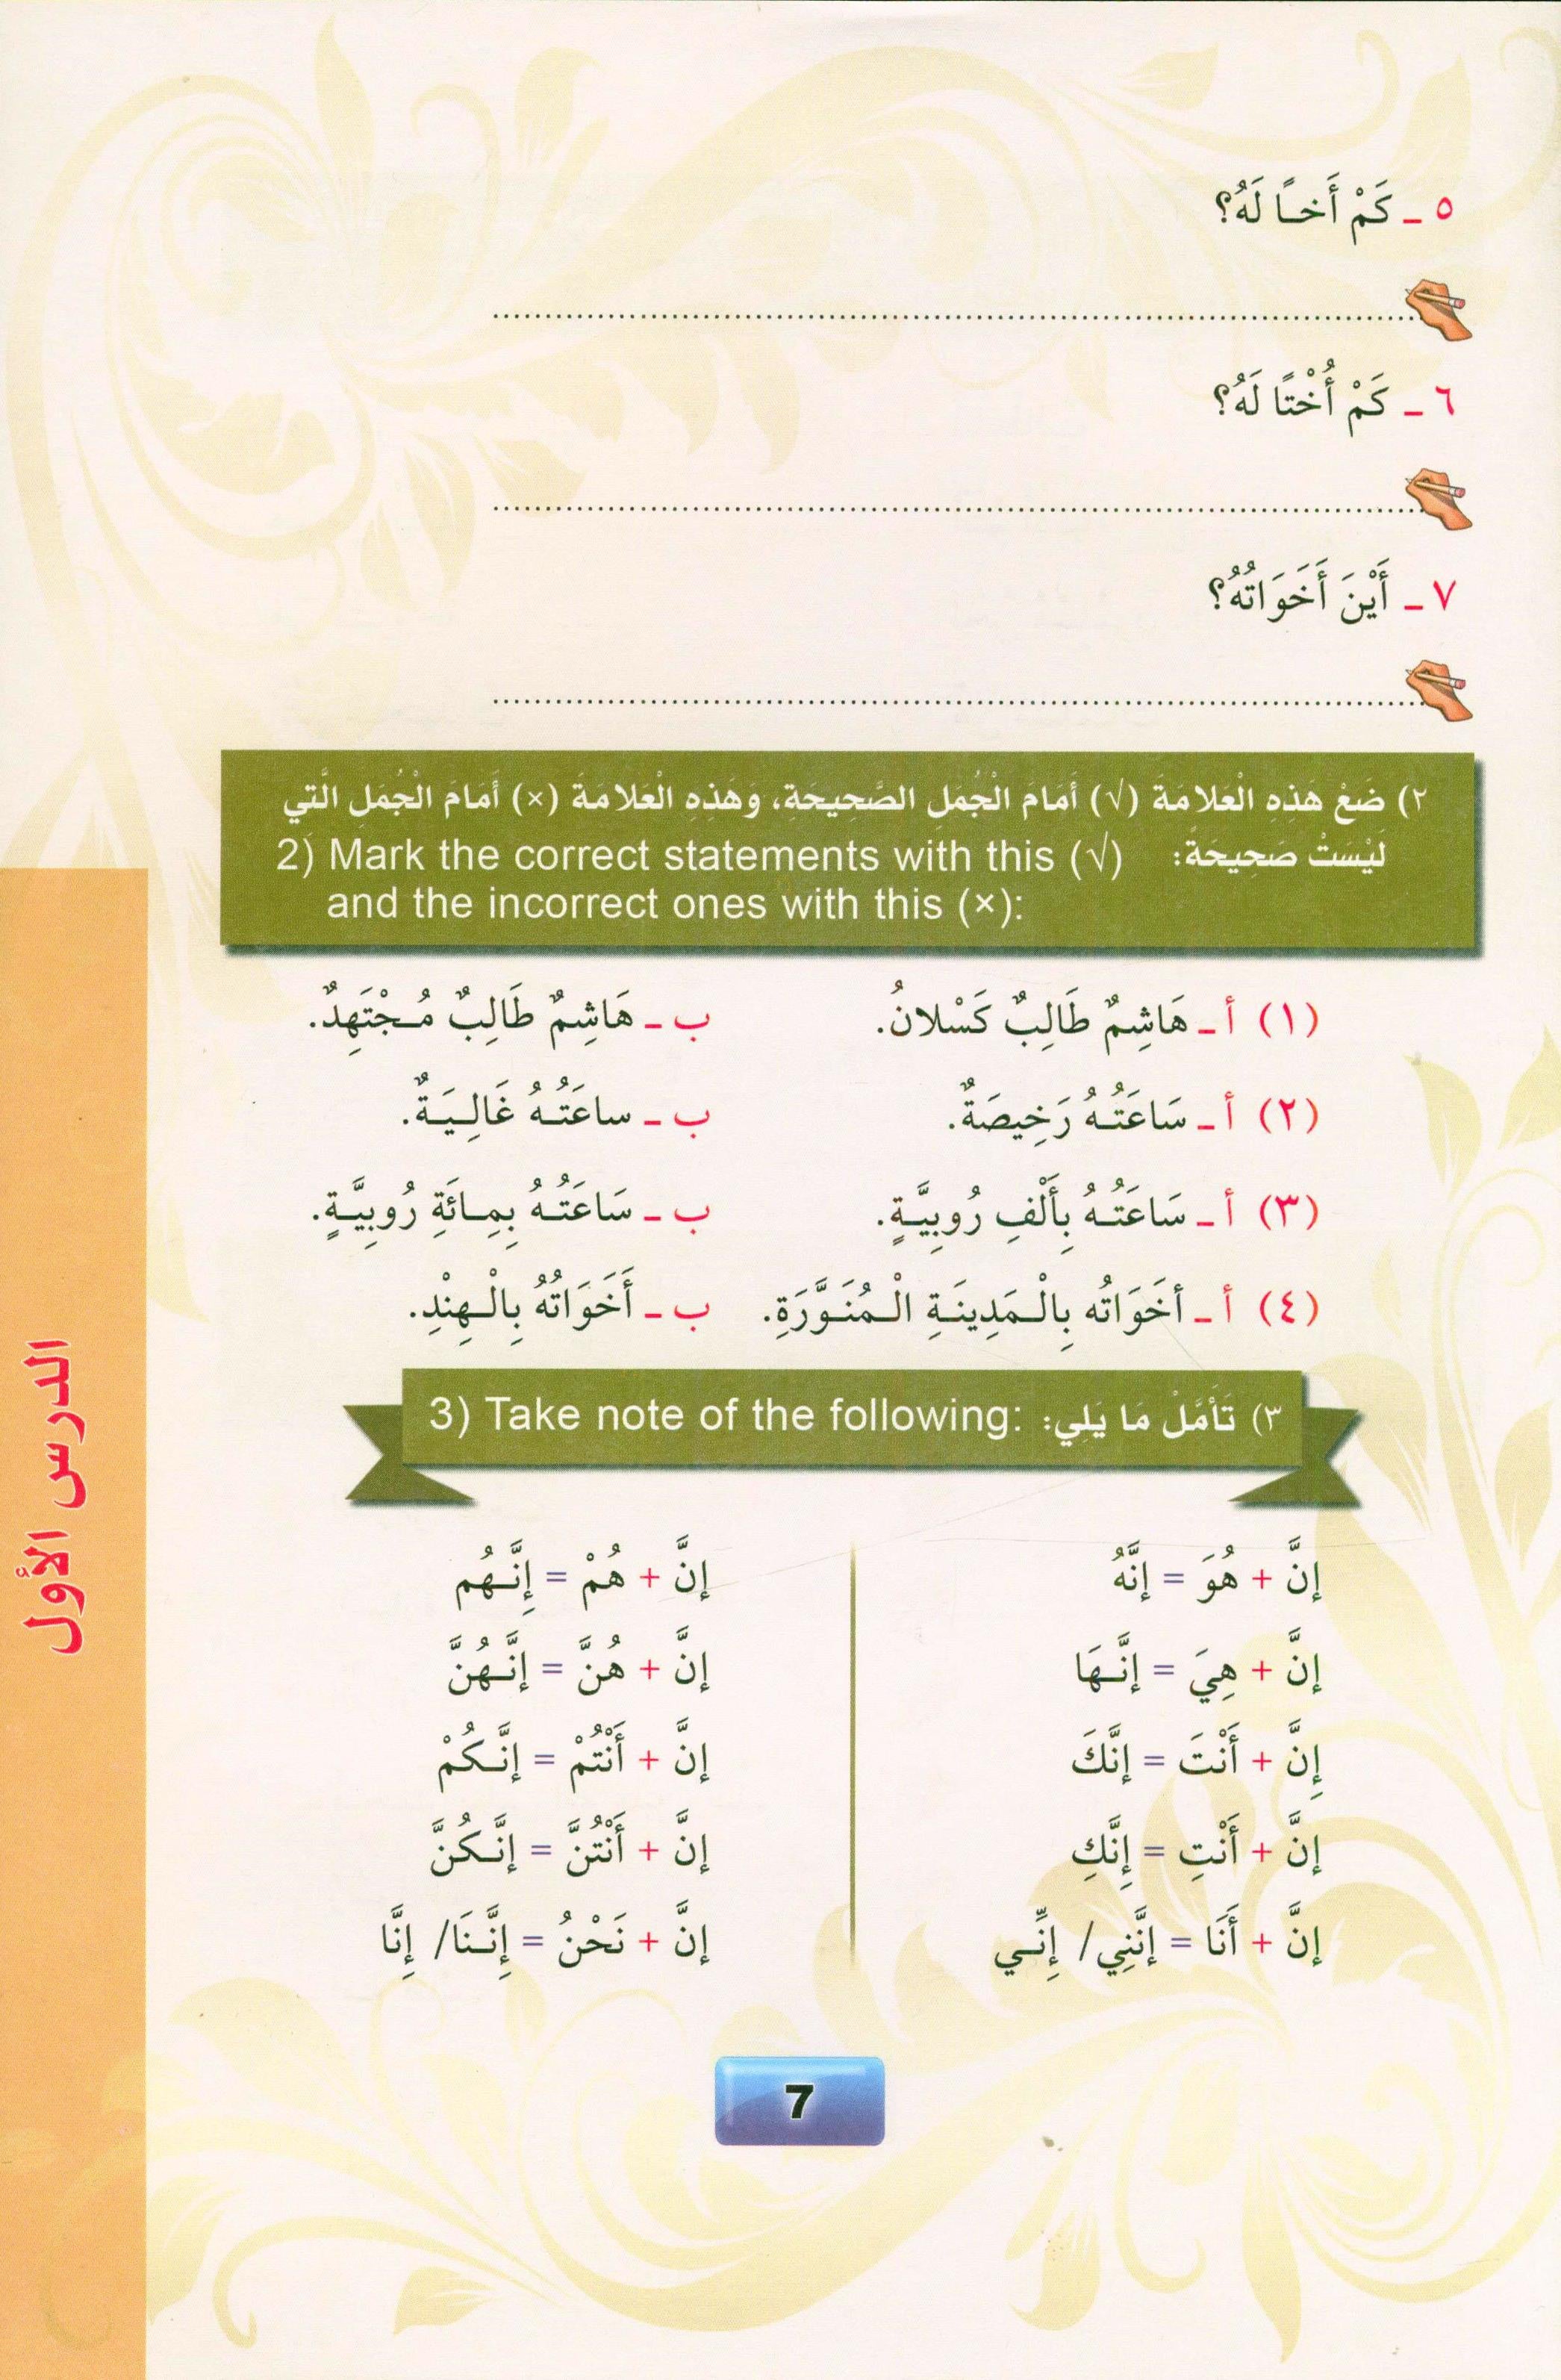 ٥ ـ كَمْ أَخًا لَهُ؟
٦ ـ كَمْ أُخْتًا لَهُ؟
٧ ـ أَيْنَ أَخَوَاتُهُ؟
٢) ضَعْ هَذِهِ الْعَلامَةَ (√) أَمَامَ الْجُمَلِ الصَّحِيحَةِ، وَهَذِهِ الْعَلامَةَ (×) أَمَامَ الْجُمَلِ الَّتِي
لَيْسَتْ صَحِيحَةً:
2) Mark the correct statements with this (√)
and the incorrect ones with this (×):
(١) أ ـ هَاشِمٌ طَالِبٌ كَسْلانُ. ب ـ هَاشِمٌ طَالِبٌ مُجْتَهِدٌ.
(٢) أ ـ سَاعَتُهُ رَخِيصَةٌ. ب ـ ساعَتُهُ غَالِيَةٌ.
(٣) أ ـ سَاعَتُهُ بِأَلْفِ رُوبِيَّةٍ. ب ـ سَاعَتُهُ بِمِائَةِ رُوبِيَّةٍ.
(٤) أ ـ أخَوَاتُه بِالْمَدِينَةِ الْمُنَوَّرَةِ. ب ـ أَخَوَاتُهُ بِالْهِنْدِ.
٣) تَأَمَّلْ مَا يَلِي: 3) Take note of the following:
إنَّ + هُوَ = إنَّهُ
إنَّ + هِيَ = إنَّهَا
إِنَّ + أَنْتَ = إنَّكَ
إنَّ + أَنْتِ = إِنَّكِ
إنَّ + أَنَا = إنَّنِي/ إِنِّي
إنَّ + هُمْ = إِنَّهُم
إنَّ + هُنَّ = إنَّهُنَّ
إنَّ + أَنْتُمْ = إنَّكُمْ
إنَّ + أَنْتُنَّ = إنَّكُنَّ
إنَّ + نَحْنُ = إِنَّنَا/ إِنَّا
الدرس الأول
7